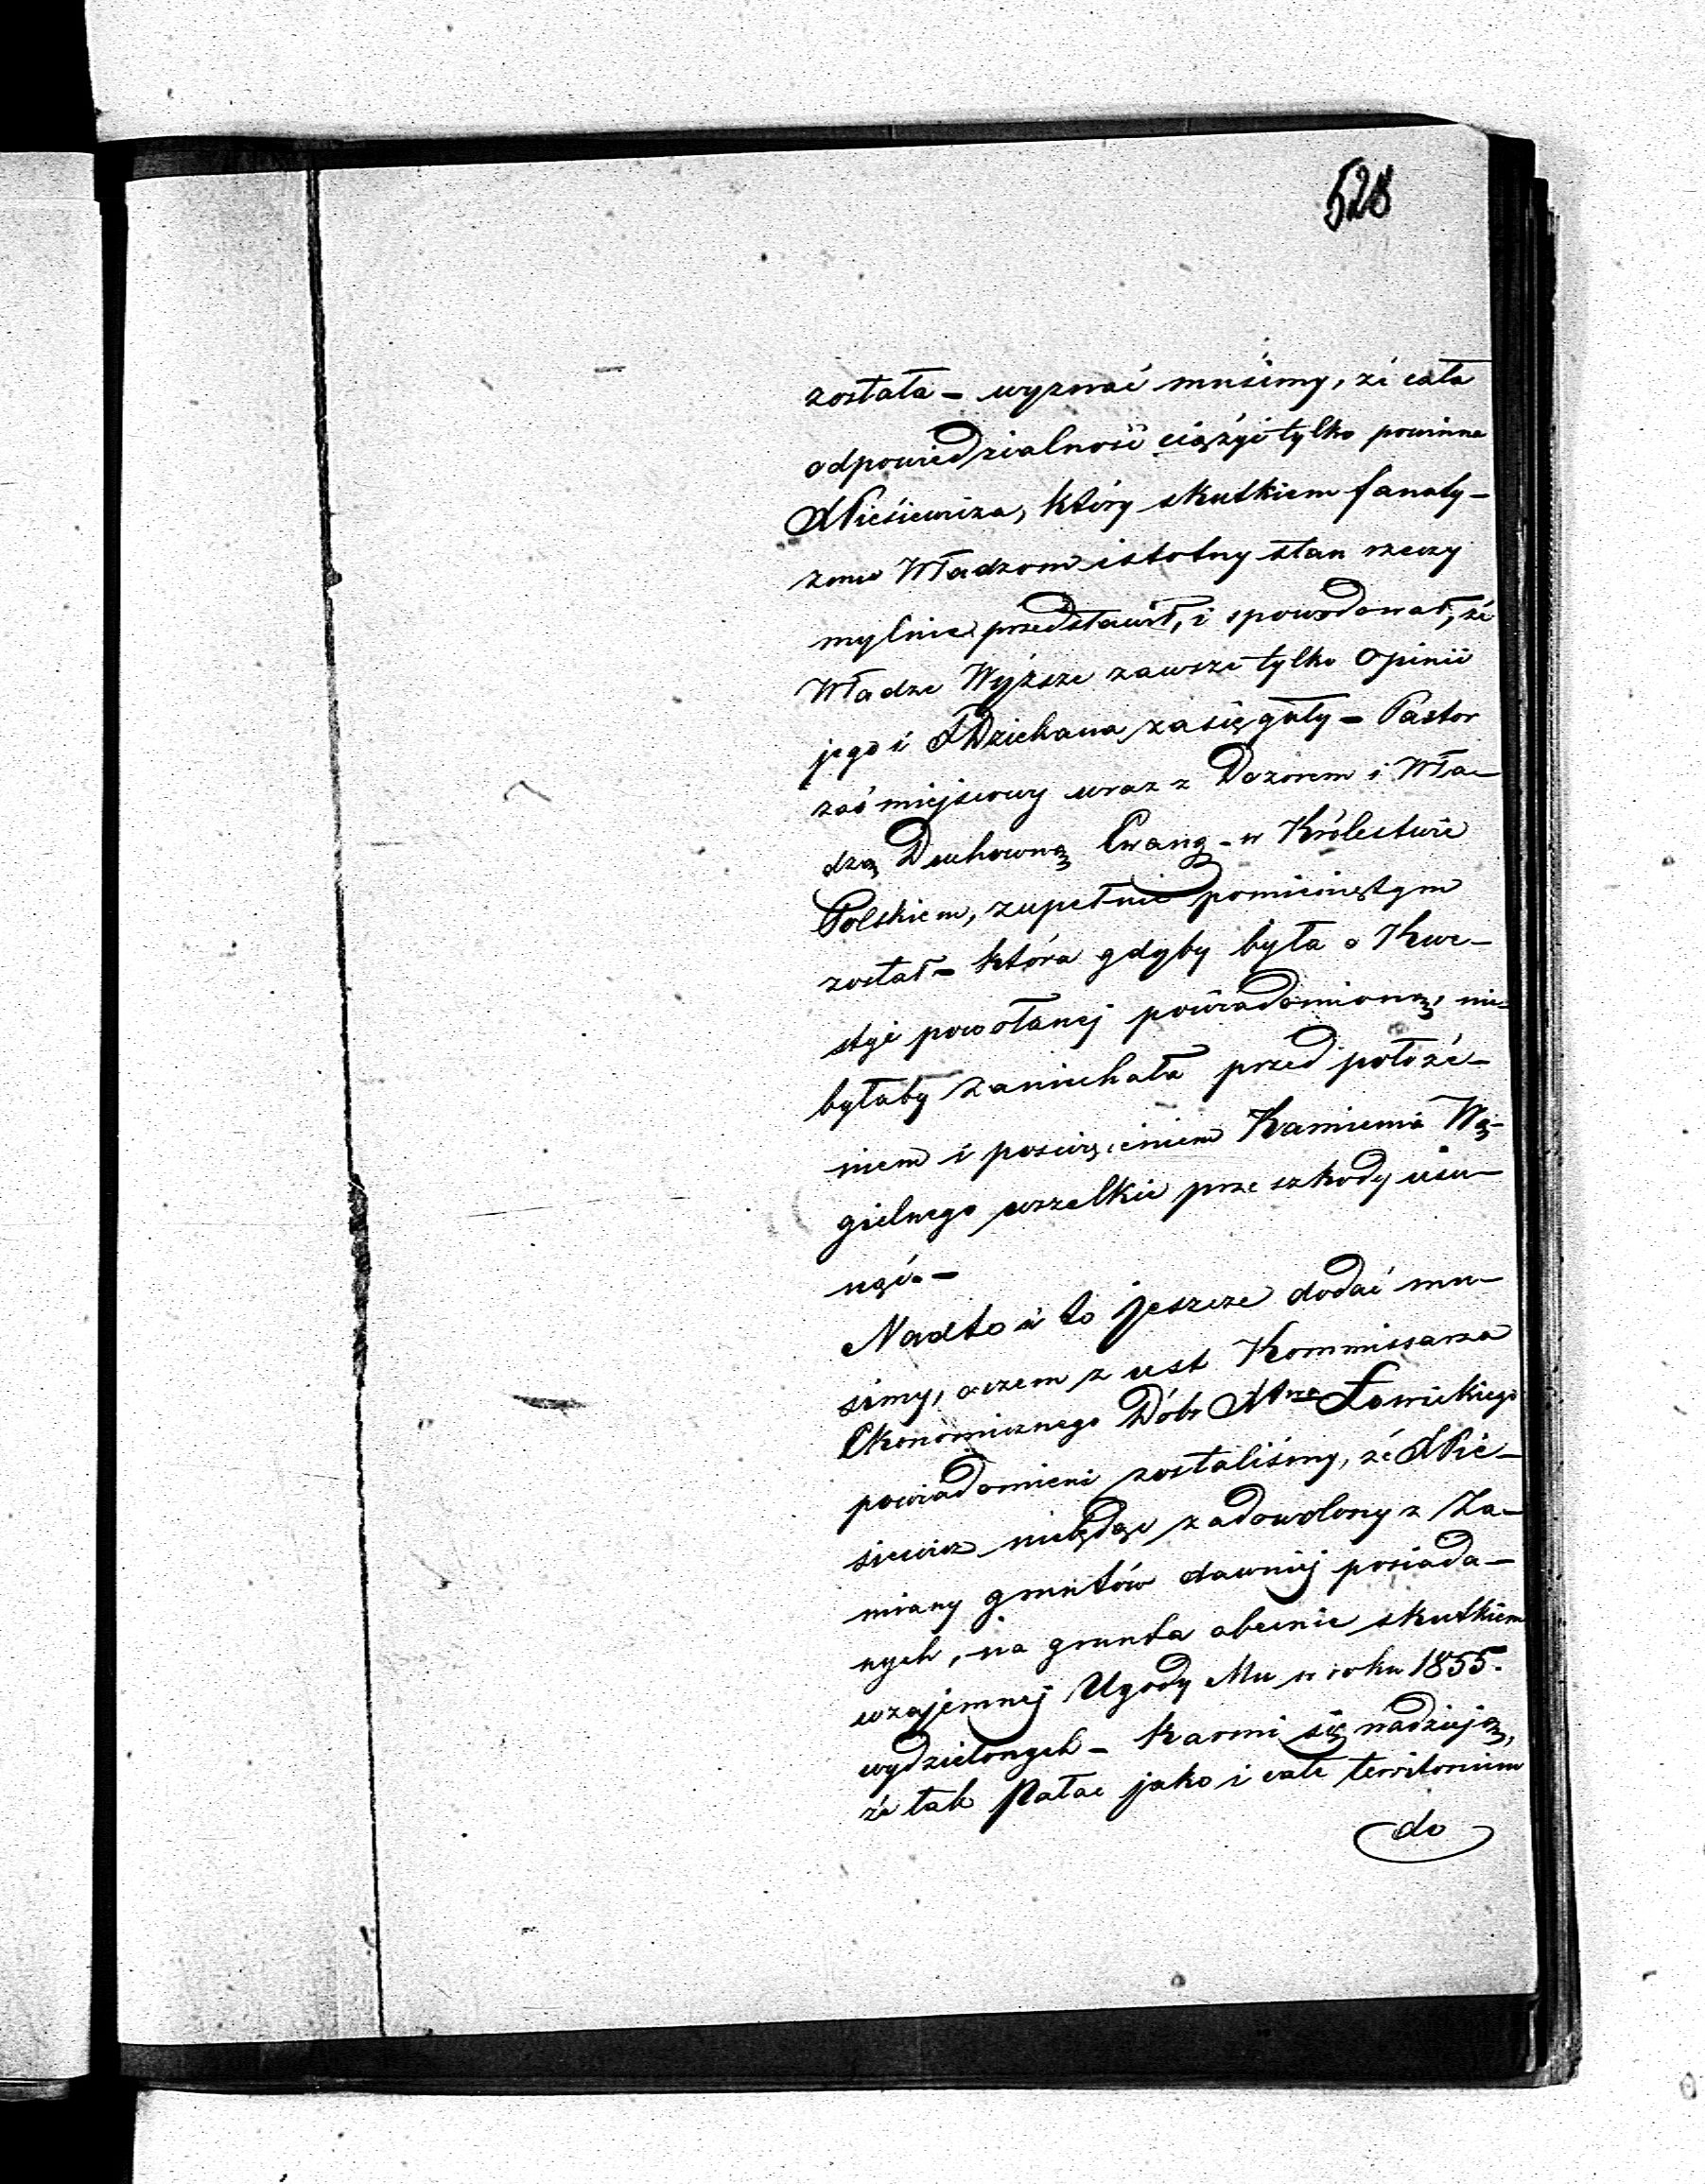 528
została – wyznać musimy, że cała
odpowiedzialność ciążyć tylko powinna
X Piesiewicza, który skutkiem fanaty-
zmu Władzom istotny stan rzeczy
mylnie przedstawił, i spowodował, że
Władze Wyższe zawsze tylko Opinii
jego i X Dziekana zasięgały – Pastor
zaś miejscowy wraz z Dozorem i Wła-
dzą Duchowną Ewang – w Królestwie
Polskiem, zupełnie pominiętym
został – która gdyby była o Kwe-
styi powołanej powiadomioną, nie
byłaby zaniechała przed położe-
niem i poswięceniem Kamienia Wę-
gielnego wszelkie przeszkody usu-
nąć. –
Nadto i to jeszcze dodać mu-
simy, oczem z ust Kommissarza
Ekonomicznego Dóbr Łowickiego
powiadomieni zostaliśmy, że X Pie-
siewicz niebędąc zadowolony z Za-
miany gruntów dawniej posiada-
nych, na grunta obecnie skutkiem
wzajemnej Ugody Mu w roku 1855.
wydzielonych – karmi się nadzieją,
że tak Pałac jako i całe territorium
do